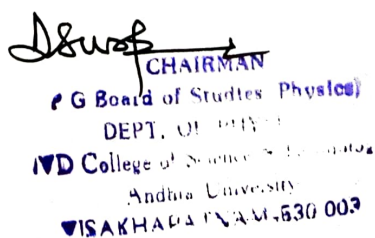 CHAIRMAN
P G Board of Studies Physics)
DEPT. OF
College of Science &
Andhra University
VISAKHAPATNAM-530 003